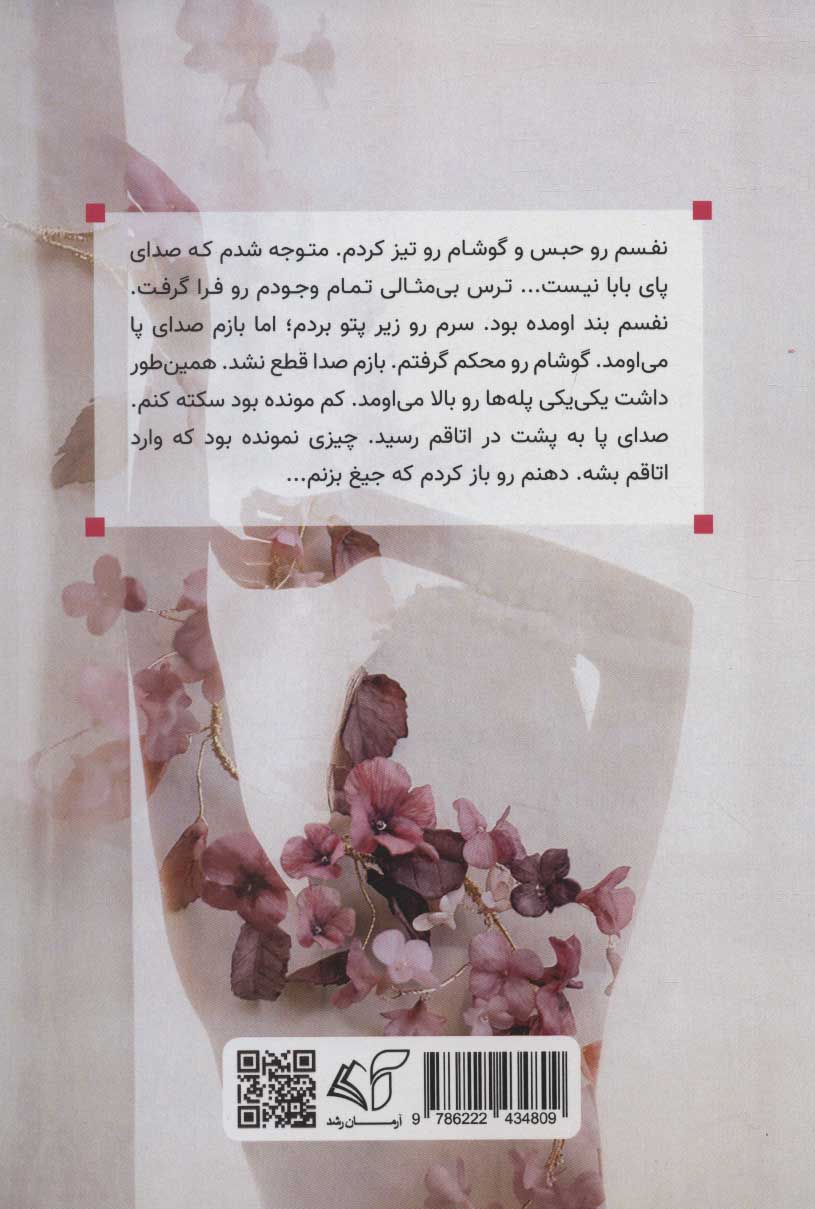 نفسم رو حبس و گوشام رو تیز کردم. متوجه شدم که صدای
پای بابا نیست... ترس بی‌مثالی تمام وجودم رو فرا گرفت.
نفسم بند اومده بود. سرم رو زیر پتو بردم؛ اما بازم صدای پا
می‌اومد. گوشام رو محکم گرفتم. بازم صدا قطع نشد. همین‌طور
داشت یکی‌یکی پله‌ها رو بالا می‌اومد. کم مونده بود سکته کنم.
صدای پا به پشت در اتاقم رسید. چیزی نمونده بود که وارد
اتاقم بشه. دهنم رو باز کردم که جیغ بزنم...
آرمان رشد
9 786222 434809